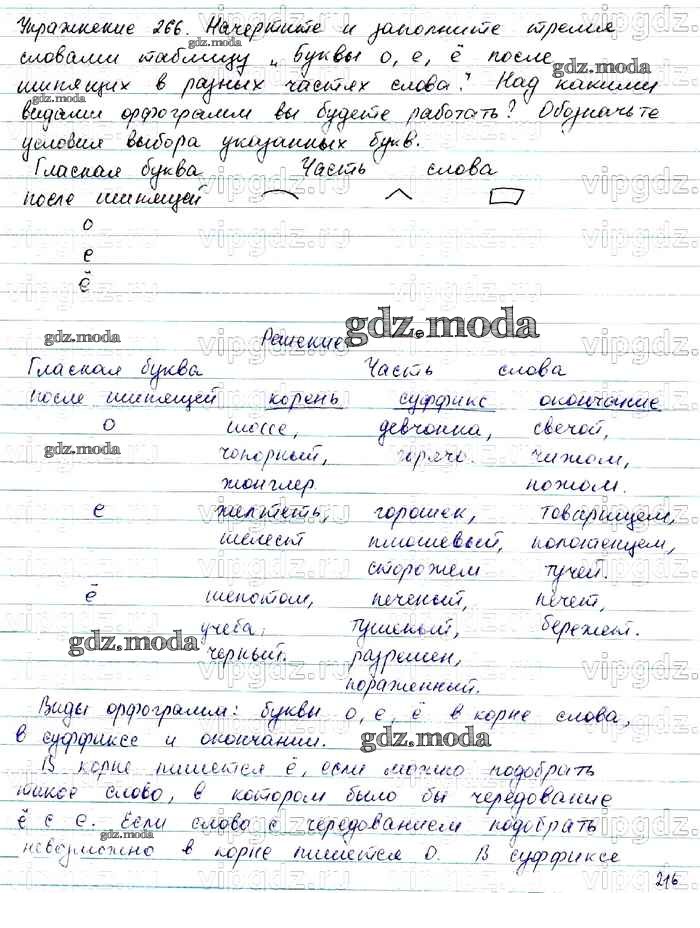 Упражнение 266. Начертите и заполните тремя
gdz.moda
словами таблицу „Буквы о, е, ё после
gdz.moda
шипящих в разных частях слова". Над какими
gdz.moda
видами орфограмм вы будете работать? Обозначьте
условия выбора указанных букв.
Гласная буква Часть слова
после шипящей
о
е
ё
gdz.moda
gdz.moda
Решение
Гласная буква Часть слова
после шипящей корень суффикс окончание
о шоссе, девчонка, свечой,
gdz.moda
чопорный, горячо. чижом,
жонглер. ножом.
е желтеть, горошек, товарищем,
шелест плюшевый, полотенцем,
сторожем тучей.
ё шепотом, печеный, печет,
учеба, тушеный, бережет.
gdz.moda
черный. разрешен,
пораженный.
Виды орфограмм: буквы о, е, ё в корне слова,
в суффиксе и окончании.
gdz.moda
В корне пишется ё, если можно подобрать
gdz.moda
такое слово, в котором было бы чередование
ё с е. Если слово с чередованием подобрать
gdz.moda
невозможно в корне пишется о. В суффиксе
216